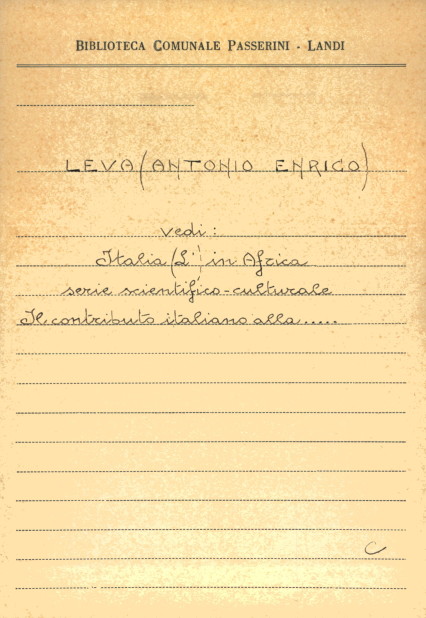 BIBLIOTECA COMUNALE PASSERINI - LANDI
LEVA (ANTONIO ENRICO)
vedi:
Italia (L') in Africa
serie scientifico-culturale
Il contributo italiano alla.....
C